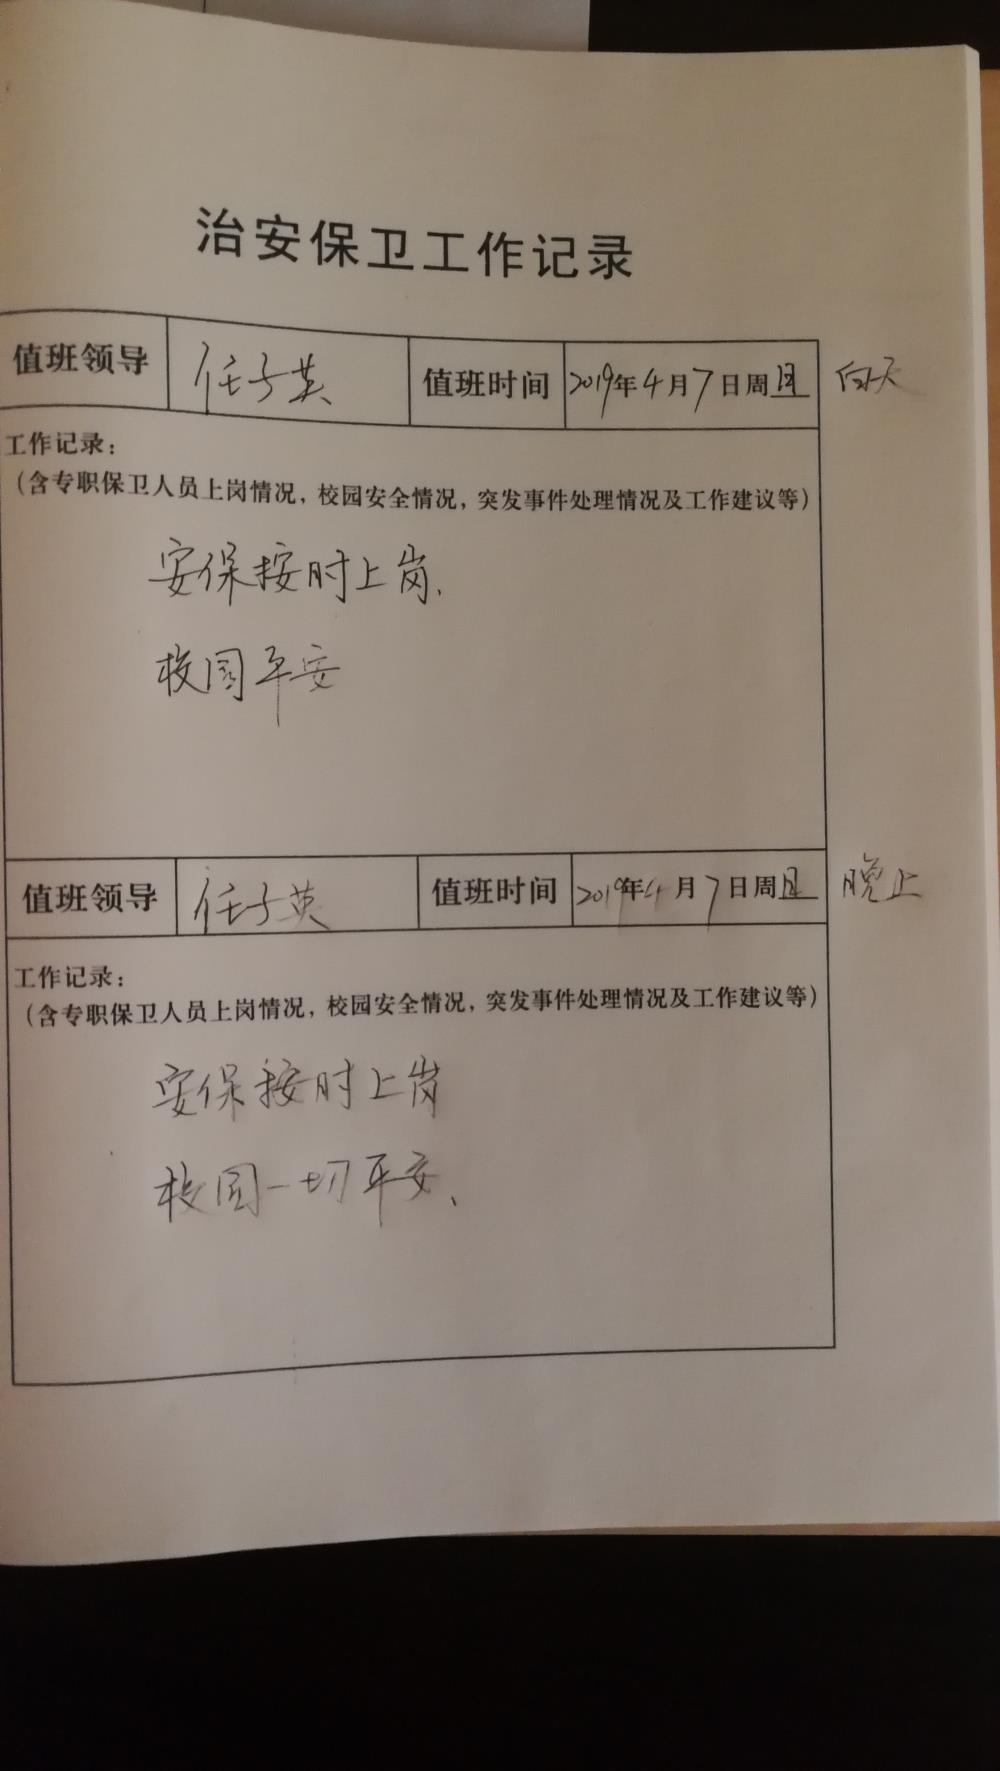 治安保卫工作记录
值班领导 任子英 值班时间 2019年4月7日周日 白天
工作记录：
（含专职保卫人员上岗情况，校园安全情况，突发事件处理情况及工作建议等）
安保按时上岗、
校园平安
值班领导 任子英 值班时间 2019年4月7日周日 晚上
工作记录：
（含专职保卫人员上岗情况，校园安全情况，突发事件处理情况及工作建议等）
安保按时上岗
校园一切平安、